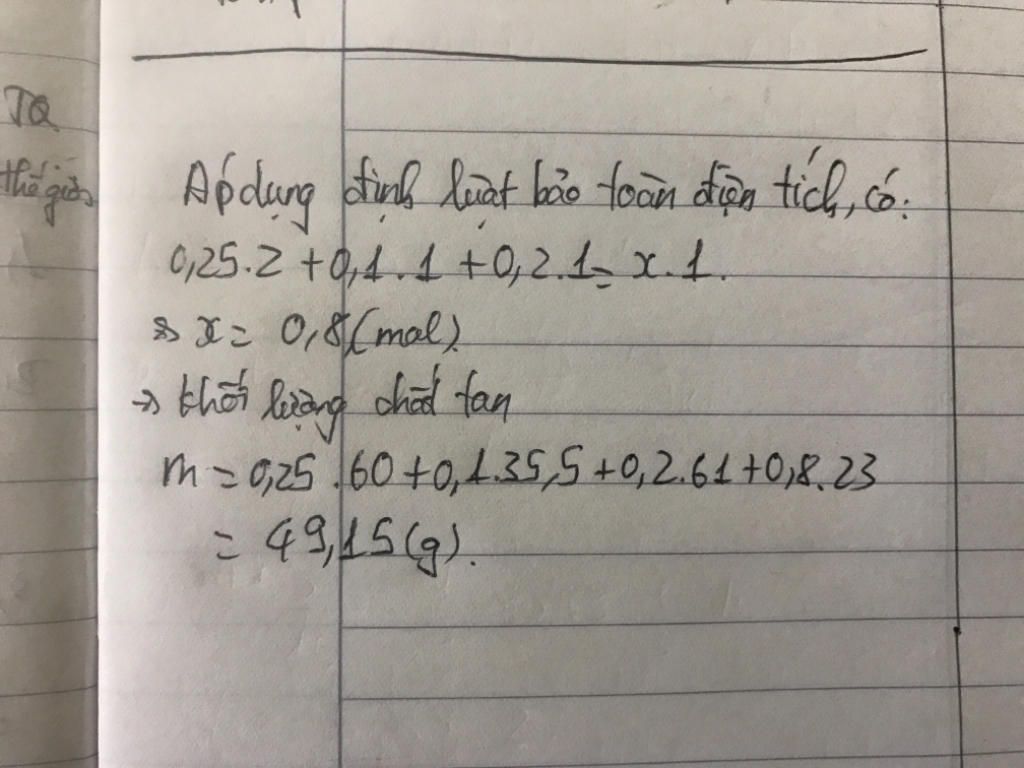 TQ
thế giới
Áp dụng định luật bảo toàn điện tích, có:
0,25.2 + 0,1.1 + 0,2.1 = x.1.
→ x = 0,8 (mol).
→ khối lượng chất tan
m = 0,25.60 + 0,1.35,5 + 0,2.61 + 0,8.23
= 49,15 (g).